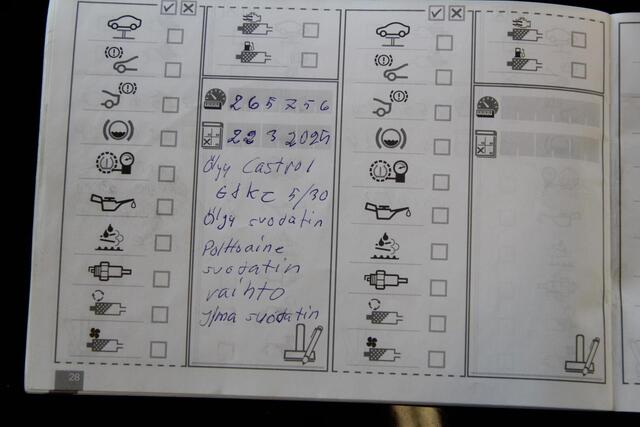 265 756
22 3 2025
Öljy Castrol
5/30
Öljy suodatin
Polttoaine
suodatin
vaihto
Ilma suodatin
28